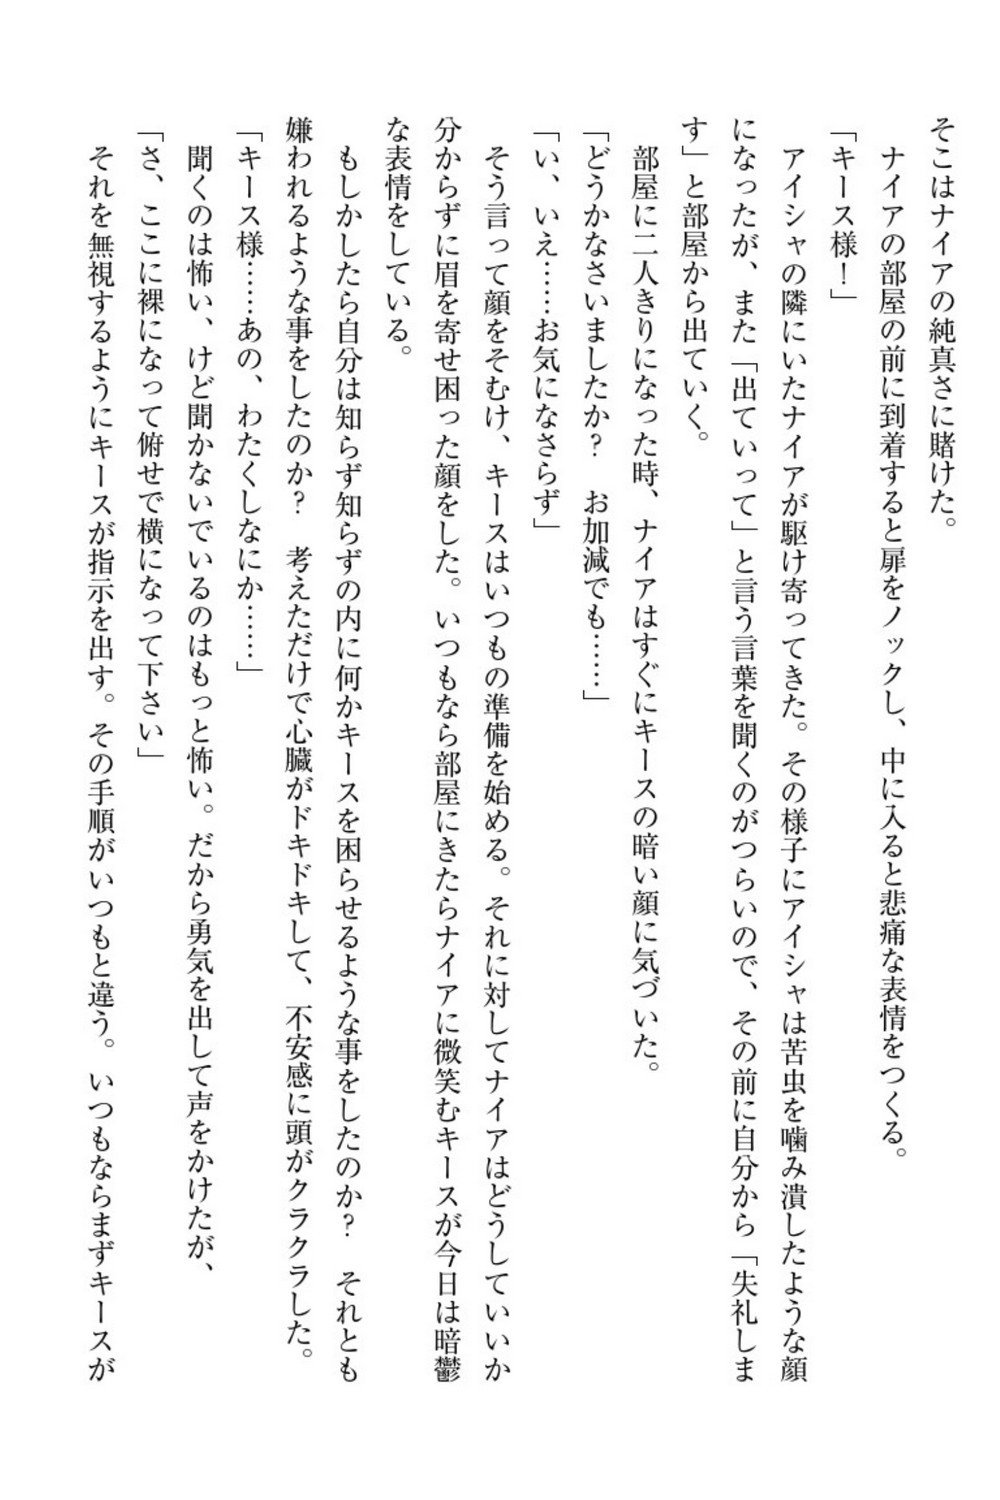 そこはナイアの純真さに賭けた。
　ナイアの部屋の前に到着すると扉をノックし、中に入ると悲痛な表情をつくる。
「キース様！」
　アイシャの隣にいたナイアが駆け寄ってきた。その様子にアイシャは苦虫を噛み潰したような顔
になったが、また「出ていって」と言う言葉を聞くのがつらいので、その前に自分から「失礼しま
す」と部屋から出ていく。
　部屋に二人きりになった時、ナイアはすぐにキースの暗い顔に気づいた。
「どうかなさいましたか？　お加減でも……」
「い、いえ……お気になさらず」
　そう言って顔をそむけ、キースはいつもの準備を始める。それに対してナイアはどうしていいか
分からずに眉を寄せ困った顔をした。いつもなら部屋にきたらナイアに微笑むキースが今日は暗鬱
な表情をしている。
　もしかしたら自分は知らず知らずの内に何かキースを困らせるような事をしたのか？　それとも
嫌われるような事をしたのか？　考えただけで心臓がドキドキして、不安感に頭がクラクラした。
「キース様……あの、わたくしなにか……」
　聞くのは怖い、けど聞かないでいるのはもっと怖い。だから勇気を出して声をかけたが、
「さ、ここに裸になって俯せで横になって下さい」
　それを無視するようにキースが指示を出す。その手順がいつもと違う。いつもならまずキースが